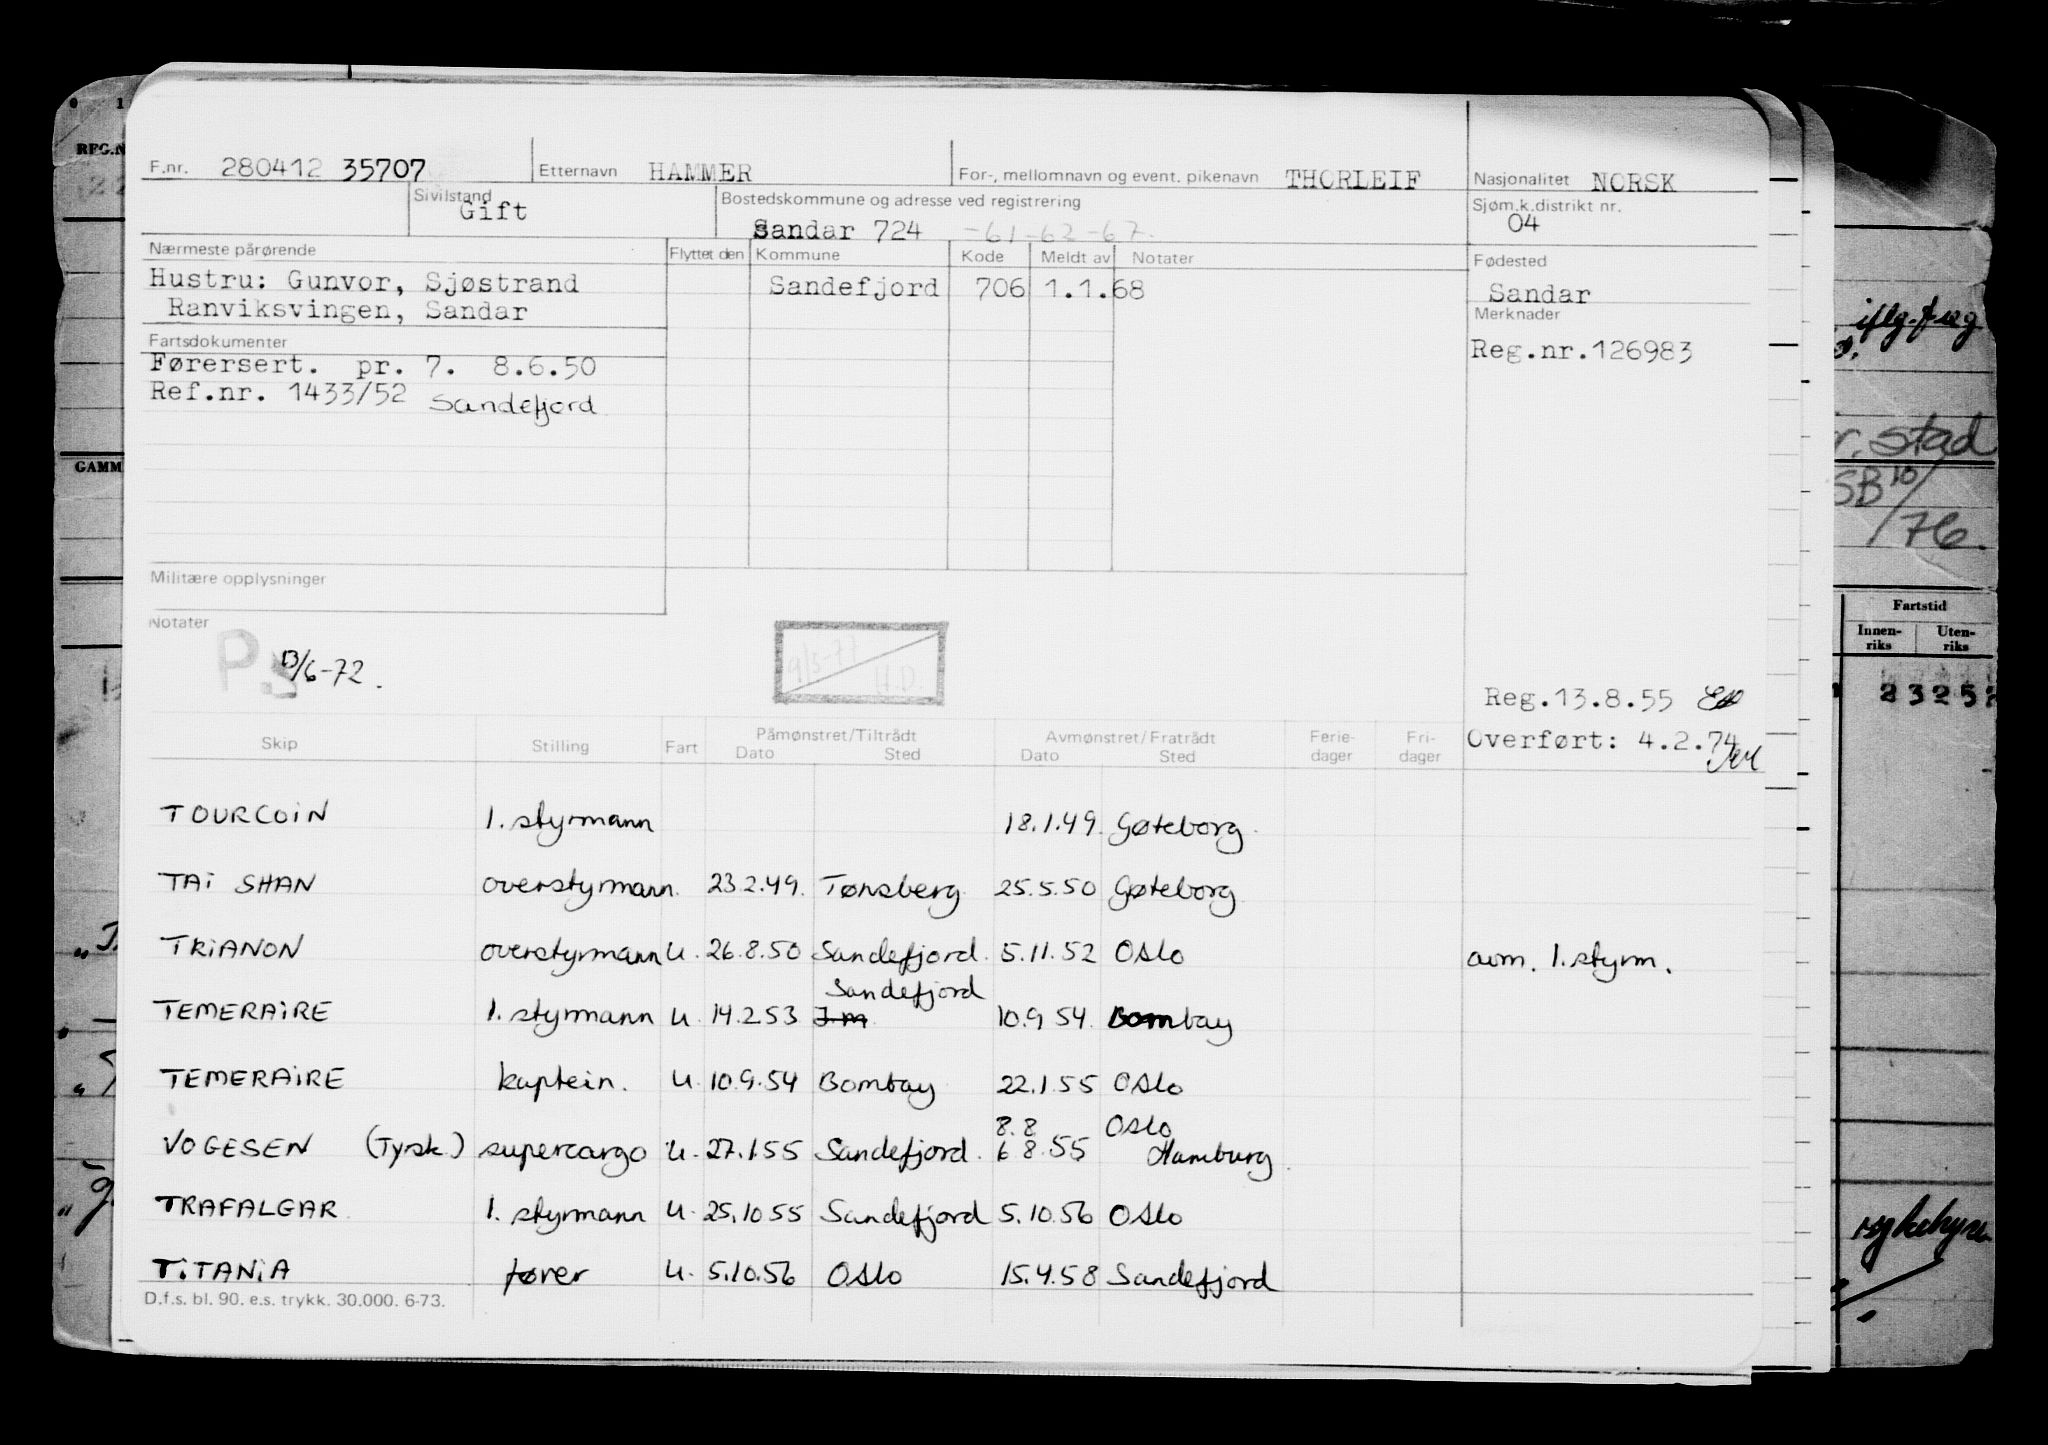 F.nr. 280412 35707 Etternavn HAMMER For-, mellomnavn og event. pikenavn THORLEIF Nasjonalitet NORSK
Sivilstand Gift Bostedskommune og adresse ved registrering Sandar 724 -61-62-67. Sjøm.k.distrikt nr. 04
Nærmeste pårørende Flyttet den Kommune Kode Meldt av Notater Fødested
Hustru: Gunvor, Sjøstrand Sandefjord 706 1.1.68 Sandar
Ranviksvingen, Sandar Merknader
Fartsdokumenter Reg.nr.126983
Førersert. pr. 7. 8.6.50
Ref.nr. 1433/52 Sandefjord
Militære opplysninger
Notater
13/6-72.
9/3-77 H.D.
Reg.13.8.55
Overført: 4.2.74
Skip Stilling Fart Påmønstret/Tiltrådt Dato Sted Avmønstret/Fratrådt Dato Sted Ferie-dager Fri-dager
TOURCOIN 1. styrmann 18.1.49. Gøteborg.
TAI SHAN overstyrmann. 23.2.49. Tønsberg 25.5.50 Gøteborg
TRIANON overstyrmann U. 26.8.50 Sandefjord. 5.11.52 Oslo avm. 1. styrm.
TEMERAIRE 1. styrmann U. 14.2.53 Sandefjord 10.9 54. Bombay
TEMERAIRE kaptein. U. 10.9.54 Bombay 22.1.55 Oslo
8.8 Oslo
VOGESEN (Tysk.) supercargo U. 27.1.55 Sandefjord. 6 8.55 Hamburg.
TRAFALGAR 1. styrmann U. 25.10 55 Sandefjord 5.10.56 Oslo
TITANIA fører U. 5.10.56 Oslo 15.4.58 Sandefjord
D.f.s. bl. 90. e.s. trykk. 30.000. 6-73.
REG.N
GAMM
r. stad
SB 10/76.
Fartstid
Innen-riks Uten-riks
2325